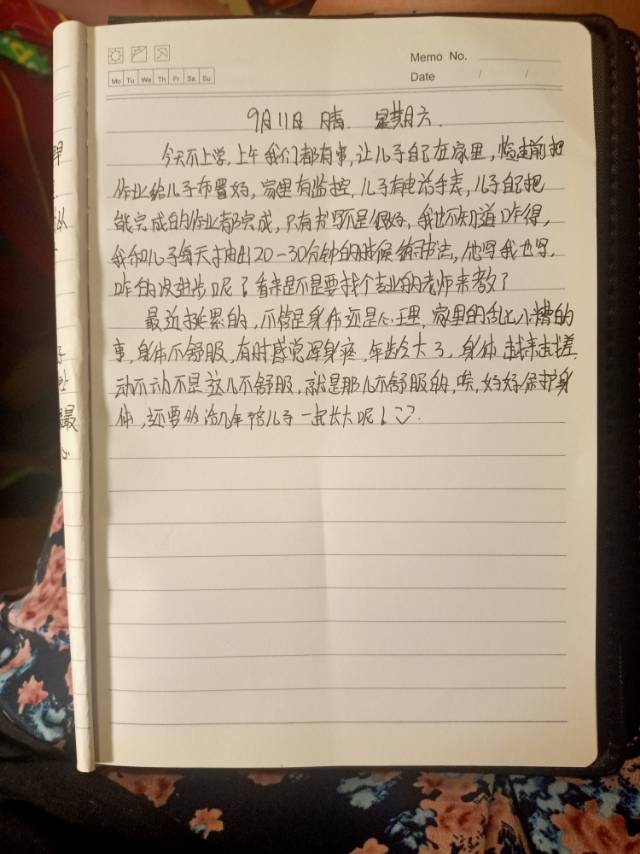 Memo No.
Mo Tu We Th Fr Sa Su
Date / /
9月11日 晴 星期六.
今天不上学,上午我们都有事,让儿子自己在家里,临走前把
作业给儿子布置好,家里有监控,儿子有电话手表,儿子自己把
能完成的作业都完成,只有书写不是很好,我也不知道咋得,
我和儿子每天抽出20-30分钟的时候练书法,他写我也写,
咋的没进步呢?看来是不是要找个专业的老师来教了
最近挺累的,不管是身体还是心理,家里的乱七八糟的
事,身体不舒服,有时感觉浑身疼,年龄大了,身体越来越差,
动不动不是这儿不舒服,就是那儿不舒服的,唉,好好保护身
体,还要多活几年陪儿子一起长大呢!
最